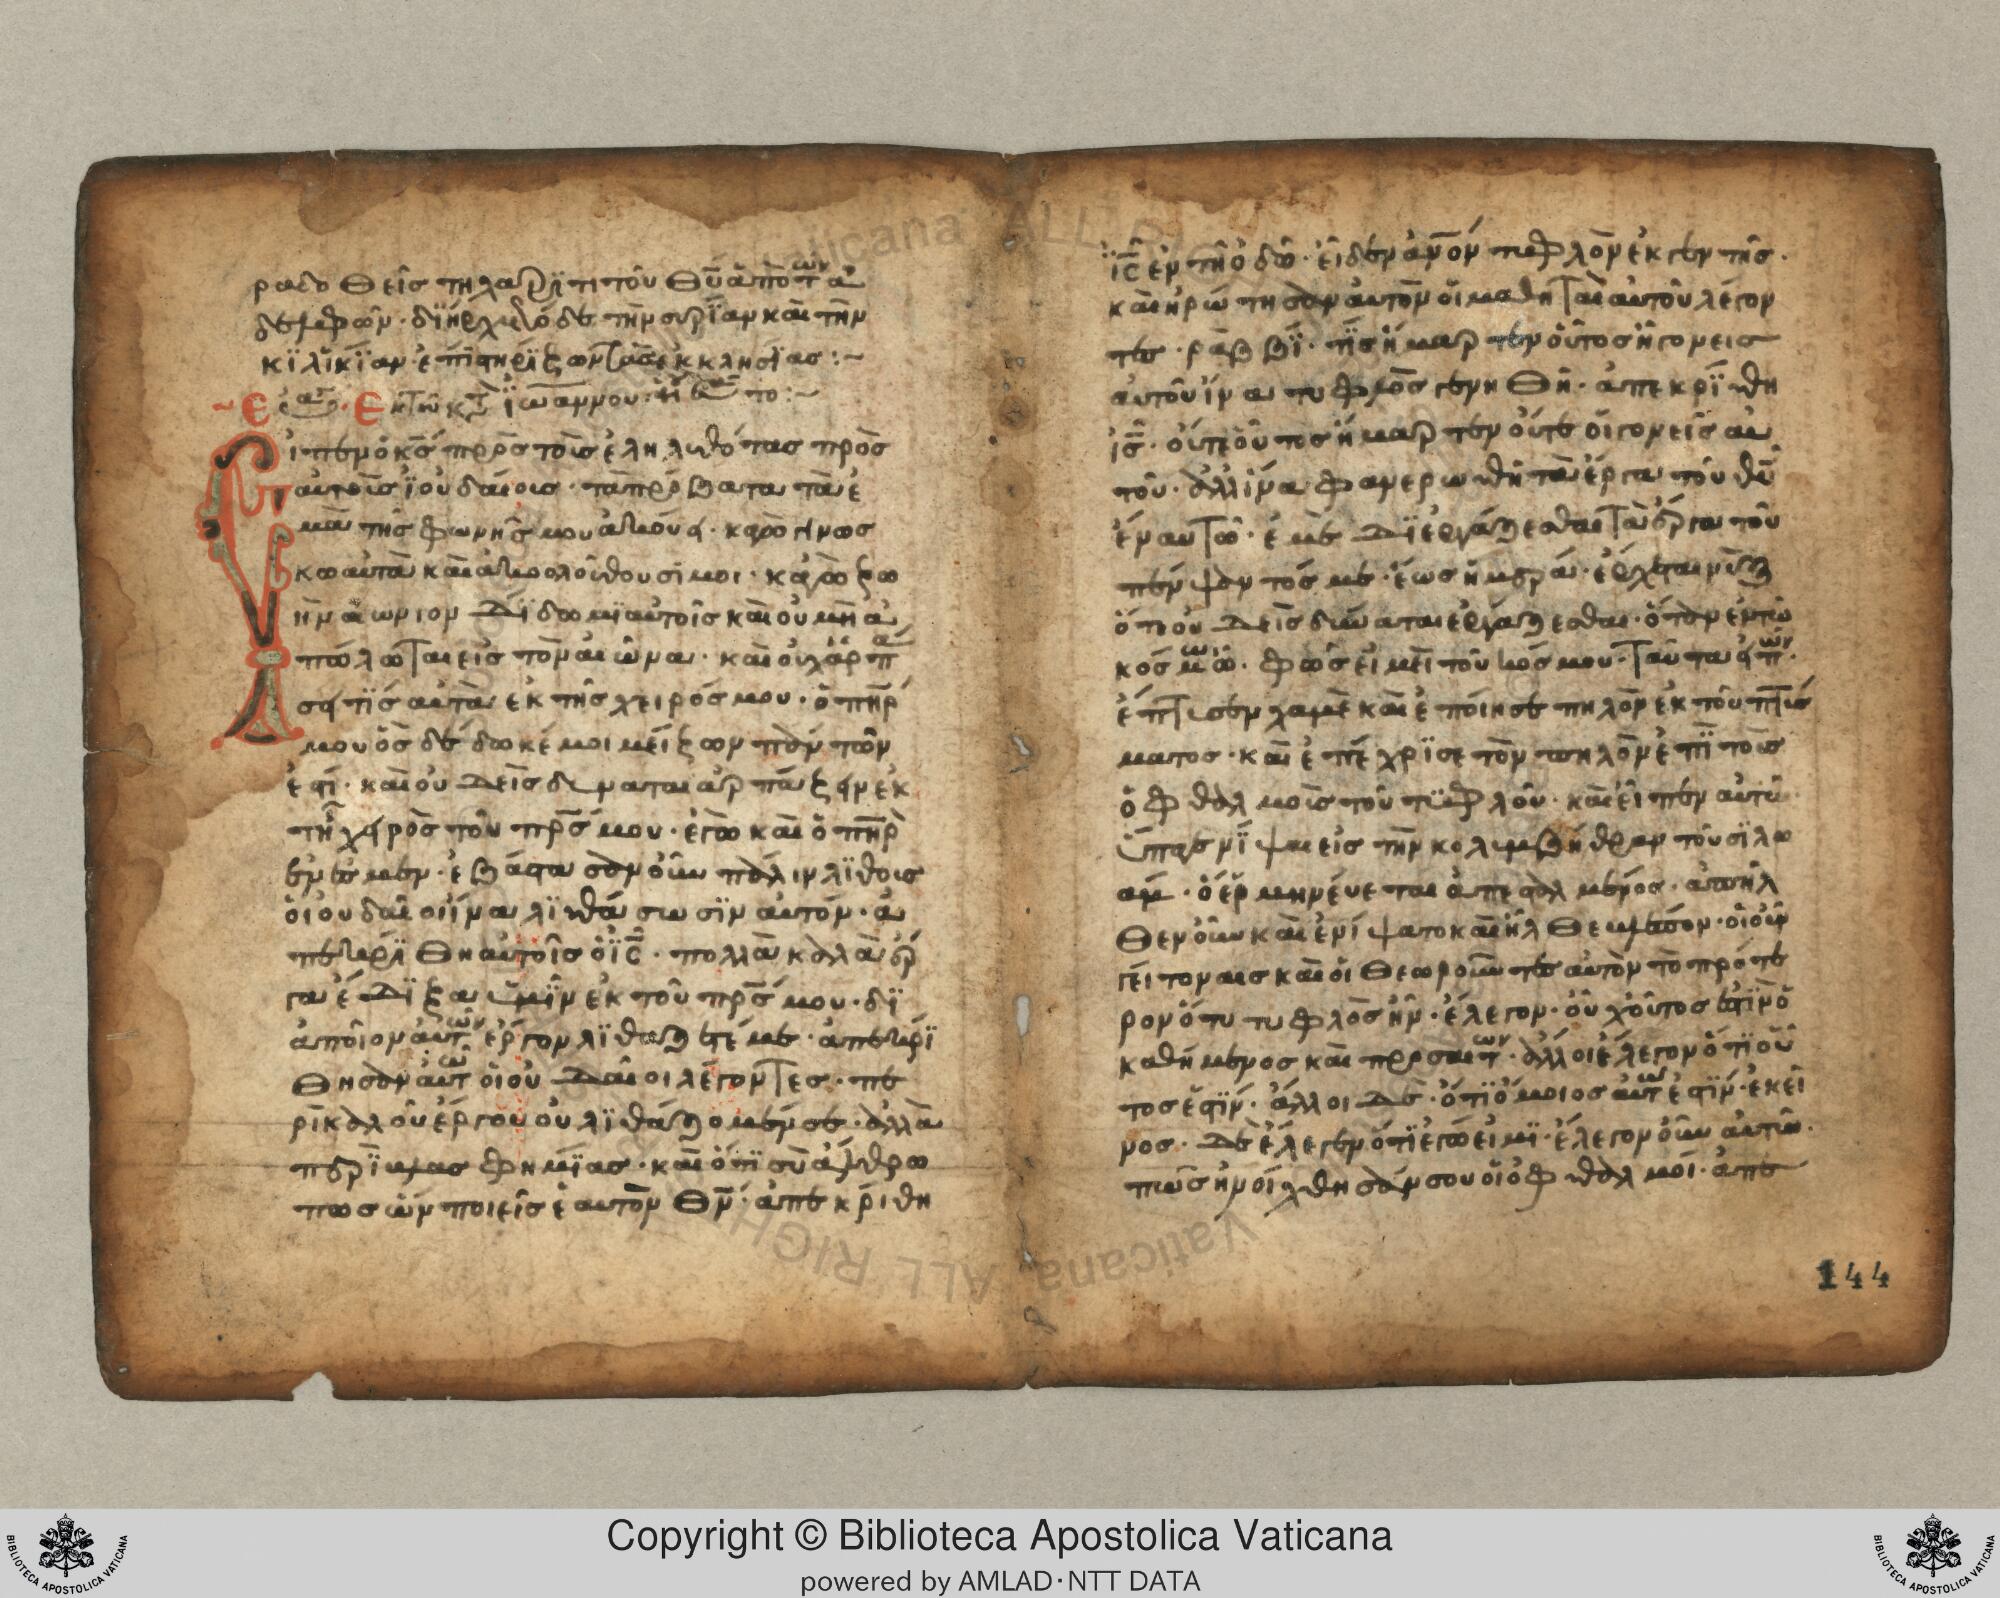 ραδοθεὶς τῆ χάριτι τοῦ θῦ ἀπὸ τῶν ἀ
δελφῶν· διήρχετο δὲ τὴν συρΐαν καὶ τὴν
κϊλϊκΐαν ἐπϊστηρΐζων τὰς ἐκκλησΐας :~
ἐκ τοῦ κτ ϊωάννου·
Εἶπεν ὁ κς πρὸς τοὺς ἐληλυθότας πρὸς
αὐτοὺς ϊουδαίους· τὰ πρόβατα τὰ ἐ
μὰ τῆς φωνῆς μου ἀκούει· καγὼ γινώσ
κω αὐτὰ καὶ ἀκολούθουσί μοι· καγὼ ζω
ὴν αἰώνιον δίδωμϊ αὐτοῖς καὶ οὐ μὴ ἀ
πόλωται εἰς τὸν αἰῶνα· καὶ οὐχ ἁρπά
σει τὶς αὐτὰ ἐκ τῆς χειρός μου· ὁ πηρ
μου ὃς δέδωκέ μοι μείζων πάντων
ἐστί· καὶ οὐδεὶς δύναται ἁρπάζειν ἐκ
τῆς χειρὸς τοῦ πρς μου· ἐγὼ καὶ ὁ πηρ
ἕν ἐσμεν· ἐβάστασαν οὖν πάλιν λΐθους
οἱ ουδαῖοι ἵνα λϊθάσωσϊν αὐτόν· ἀ
πεκρΐθη αὐτοῖς ὁ ϊς· πολλὰ καλὰ ἔρ
γα ἔδϊξα ὑμῖν ἐκ τοῦ πρς μου· δϊ
ἀποῖον αὐτῶν ἔργον λϊθάζετέ με· ἀπεκρΐ
θησαν αὐτῶ οἱ ουδαῖοι λέγοντες· πε
ρὶ καλοῦ ἔργου οὐ λϊθάζομέν σε· ἀλλὰ
περῒ βλασφημΐας· καὶ ὅτϊ σὺ ἄνθρω
πος ὢν ποιεῖς ἑαυτὸν θν· ἀπεκρίθη
ϊς ἐν τῆ ὁδῶ· εἶδεν ἀνον τυφλὸν ἐκ γενητῆς·
καὶ ἠρώτησαν αὐτὸν οἱ μαθηταὶ αὐτοῦ λέγον
τες· ραββΐ· τΐς ἥμαρτεν οὗτος ἢ γονεις
αὐτοῦ ἵνα τυφλὸς γενηθῆ· ἀπεκρΐθη
ϊς· οὔτε οὗτος ἥμαρτεν οὔτε οἱ γονεῖς αὐ
τοῦ· ἀλλ ἵνα φανερωθῆ τὰ ἔργα τοῦ θῦ
ἐν αυτῶ· ἐμὲ δῒ ἐργάζεσθαι τὰ ἔργα τοῦ
πέμψαντός με· ἕως ἡμέρα· ἔρχεται νὺξ
ὅτου οὐδεὶς δύναται ἐργάζεσθαι· ὅταν ἐν τῶ
κόσμω ὦ· φῶς εἰμεὶ τοῦ κόσμου· ταῦτα εἰπὼν·
ἔπτυσεν χαμὲ καὶ ἐποίησε πηλὸν ἐκ τοῦ πτύς
ματος· καὶ ἐπέχρισε τὸν πηλὸν ἐπῒ τοὺς
ὀφθαλμοὺς τοῦ τυφλοῦ· καὶ εἶπεν αὐτῶ
ὕπαγε νίψαι εἰς τὴν κολυμβήθραν τοῦ σϊλω
άμ· ὃ ἑρμηνεύεται ἀπεσταλμένος· ἀπῆλ
θεν οὖν καὶ ἐνίψατο καὶ ἦλθε βλέπων· οἱ οὖν
γείτοναις καὶ οἱ θεωροῦντες αὐτὸν τὸ πρότε
ρον ὅτι τυφλὸς ἦν· ἔλεγον· οὐχ οὗτος ἐστϊν ὁ
καθήμενος καὶ προσαιτῶν· ἄλλοι ἔλεγον ὅτϊ οὗ
τος ἐστϊν· ἄλλοι δὲ· ὅτϊ ὅμοιος αὐτῶ ἐστϊν· ἐκεῖ
νος· δὲ ἔλεγεν ὅτϊ ἐγώ εἰμϊ· ἔλεγον οὖν αὐτῶ·
πῶς ἠνοίχθησάν σου οἱ ὀφθαλμοί· ἀπε
144
Copyright © Biblioteca Apostolica Vaticana
powered by AMLAD·NTT DATA
BIBLIOTECA APOSTOLICA VATICANA
BIBLIOTECA APOSTOLICA VATICANA